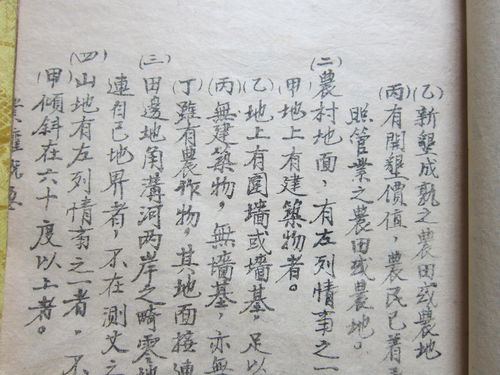 (乙)新墾成熟之農田或農地
(丙)有開墾價值，農民已着
照管業之農田或農地。
(二)農村地面，有左列情事之一
甲地上有建築物者。
(乙)地上有圍墻或墻基，足以
(丙)無建築物，無墻基，亦無
(丁)雖有農作物，其地面接連
(三)田邊地角溝河两岸之畸零地
連自己地界者，不在測丈之
(四)山地有左列情事之一者，不
(甲)傾斜在六十度以上者。